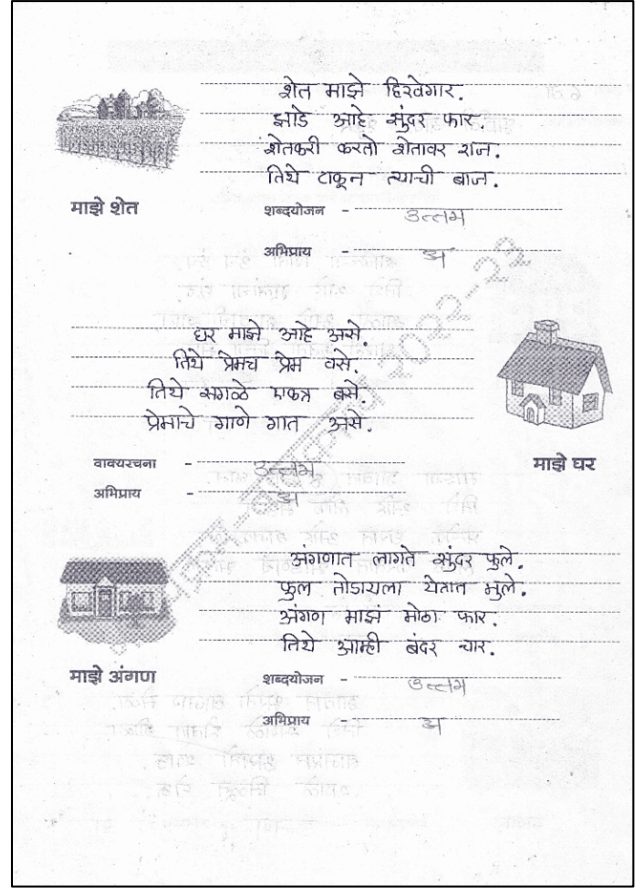 शेत माझे हिरवेगार.
झाडे आहे सुंदर फार
शेतकरी करतो शेतावर राज.
तिथे टाकून त्याची बाज.
माझे शेत
शब्दयोजन - उत्तम
अभिप्राय - अ
घर माझे आहे असे.
तिथे प्रेमच प्रेम वसे.
तिथे सगळे एकत्र बसे.
प्रेमाचे गाणे गात असे.
माझे घर
वाक्यरचना - उत्तम
अभिप्राय - अ
अंगणात लागते सुंदर फुले.
फुल तोडायला येतात मुले.
अंगण माझं मोठा फार.
तिथे आम्ही बंदर चार.
माझे अंगण
शब्दयोजन - उत्तम
अभिप्राय - अ
२०२२-२३